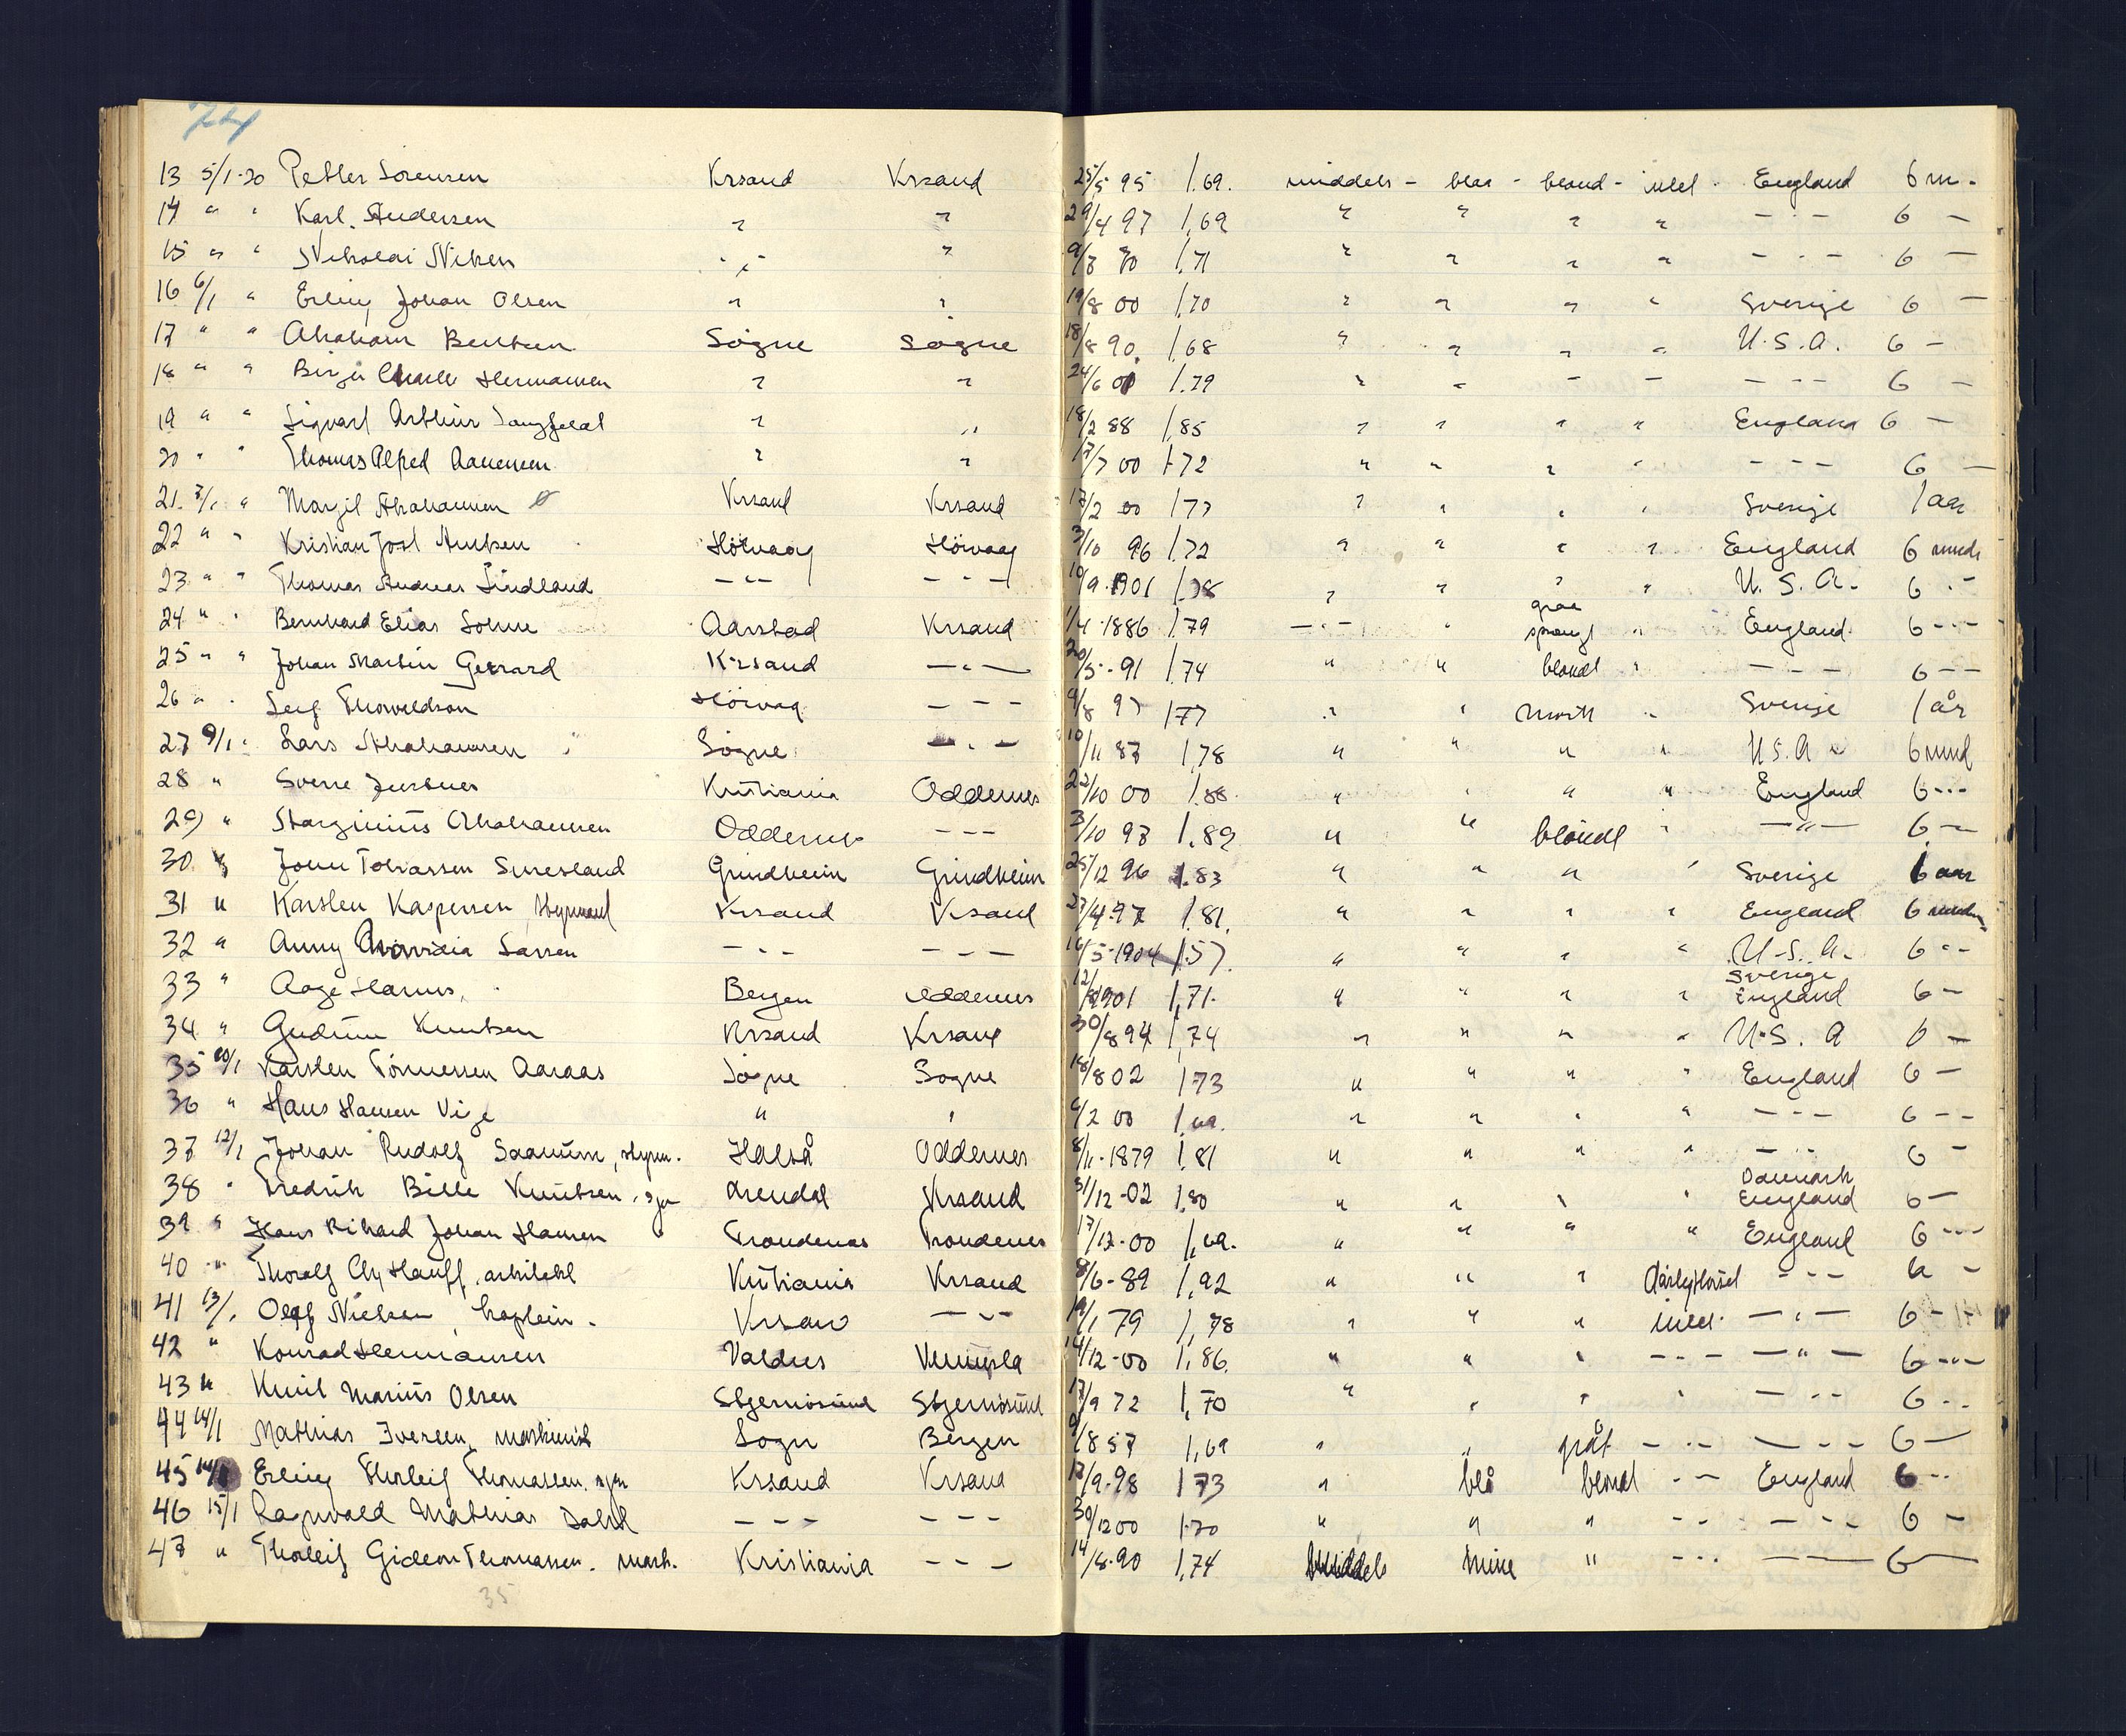 74
13 5/1-20 Petter Sörensen Krsand Krsand 25/5 95 1.69. middels - blaa - blond - intet. England 6 m.
14 " " Karl. Andersen " " 29/4 97 1,69 " " " " - " - 6 -
15 " " Nikolai Nilsen " " 9/3 70 1.71 " " " " - " - 6 -
16 6/1 " Erling Johan Olsen " " 19/8 00 1,70 " " " " Sverige 6 -
17 " " Abraham Bentsen Sögne Sögne 18/8 90. 1.68 " " " " U.S.A. 6 -
18 " " Birger Hermansen " " 24/6 01 1.79 " " - - - - - 6 -
19 " " Sigvart Arthur Langfeldt " " 18/2 88 1,85 " " " " England 6 -
20 " " Thomas Alfred Aanensen " " 17/7 00 1.72 " " " " - - - 6 -
21. 7/1 " Margit Abrahamsen Krsand Krsand 17/2 00 1.77 " " " " Sverige 1 aar
22 " " Kristian Josf Knutsen Hövaag Hövaag 3/10 96 1.72 " " " " England 6 mnds
23 " " Thomas Andreas Lindland - " - - " - 10/9.1901 1.78 " " " " U.S.A. 6 " -
24 " " Bernhard Elias Solme Aarstad Krsand 1/4-1886 1.79 - " - " graa sprengt " England 6 - - -
25 " " Johan Martin Gerrard Krsand - " - 20/5-91 1.74 " " blondt " - - - 6 - -
26 " " Leif Thorvaldson Hövaag - - - 9/8 97 1.77 " " mörk " Sverige 1 år
27 9/1 " Lars Abrahamsen Sögne - " - 10/11 87 1.78 " " " " U.S.A 6 mnd
28 " Sverre Justnes Kristiania Oddernes 22/10 00 1.88. " " " " England 6 - - -
29 " Starginius Abrahamsen Oddernes - - - 3/10 97 1.89 " " blöndt " - " - 6 -
30 " John Tobiassen Sveresland Grindheim Grindheim 25/12 96 1.83 " " " " Sverige 1 aar
31 " Karsten Kaspersen styrmand Krsand Krsand 27/4.97 1.81. " " " " England 6 mnder
32 " Anny Larsen - " - - - - 16/5-1904 1.57. " " " " U.S.A. 6 " -
33 " Aage Hannes, Bergen Oddernes 12/8 1901 1,71. " " " " Sverige England 6 -
34 " Gudrun Knutsen Krsand Krsand 30/8 94 1,74 " " " " U.S.A 6 -
35 10/1 Karsten Tönnessen Aaraas Sögne Sogne 18/8 02 1.73 " " " " England 6 -
36 " Hans Hansen Vige " " 6/2 00 1,69. " " " " - - - 6 - -
37 12/1 Johan Rudolf Saanum, styrm. Halså Oddernes 8/11-1879 1.81 " " " " - " - 6 -
38 " Fredrik Bille Knutsen, sjm Arendal Krsand 31/12-02 1.80 " " " " Danmark England 6 -
39 " Hans Rikard Johan Hansen Trondenes Trondenes 17/12-00 1,69. " " " " England 6 - - -
40 " Thoralf Chr Hauff, arkitekt Kristiania Krsand 8/6-89 1,92 " " " - - - 6 -
41 13/1 Olaf Nielsen, kaptein. Krsand - " - 19/1 79 1,78 " " " intet. - " - 6 - -
42 " Konrad Hermansen Valdres Vennesla 14/12-00 1,86. " " " - - - - " - 6 - - -
43 " Knut Marius Olsen Stjernösund Stjernösund 17/9 72 1,70 " " " " - " - 6 - -
44 14/1 Mathias Iversen, maskinist Sogn Bergen 9/8 57 1,69 " " gråt - " - - - - 6 -
45 14/1 Erling Thorleif Thomassen. sjm Krsand Krsand 13/9-98 1.73 " blå blondt " - England 6 - -
46 15/1 Ragnvald Mathias Dahl - - - - - - 30/12 00 1.70 " " " - - - - " - 6 -
47 " Thorleif Gideon Thomassen. mask. Kristiania - - - 14/8-90 1,74 Middels brune " - - - - - 6 -
35